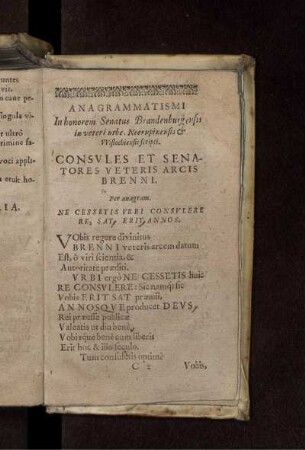 untes
vit.
cane pe-
ingula vi-
r ultrò
rimine fa-
voci appli-
IA.
ANAGRAMMATISMI
In honorem Senatus Brandenburgensis
in veteri urbe. Neoruppinensis &
scripti.
CONSVLES ET SENA-
TORES VETERIS ARCIS
BRENNI.
Per anagram.
NE CESSETIS VRBI CONSVLERE
RE, SAT, ERIT, ANNOS.
VObis regere divinitus
BRENNI veteris arcem datum
Est, ô viri scientiâ, &
Autoritate præditi.
VRBI ergò NE CESSETIS huic
RE CONSVLERE: Sic namq; sic
Vobis ERIT SAT præmii,
ANNOSQVE producet DEVS,
Rei præesse publicæ
Valeatis ut diu benè,
Vobisque benè cum liberis
Erit hoc & illo sæculo.
Tum consultis optimè
C 2 Vobis,